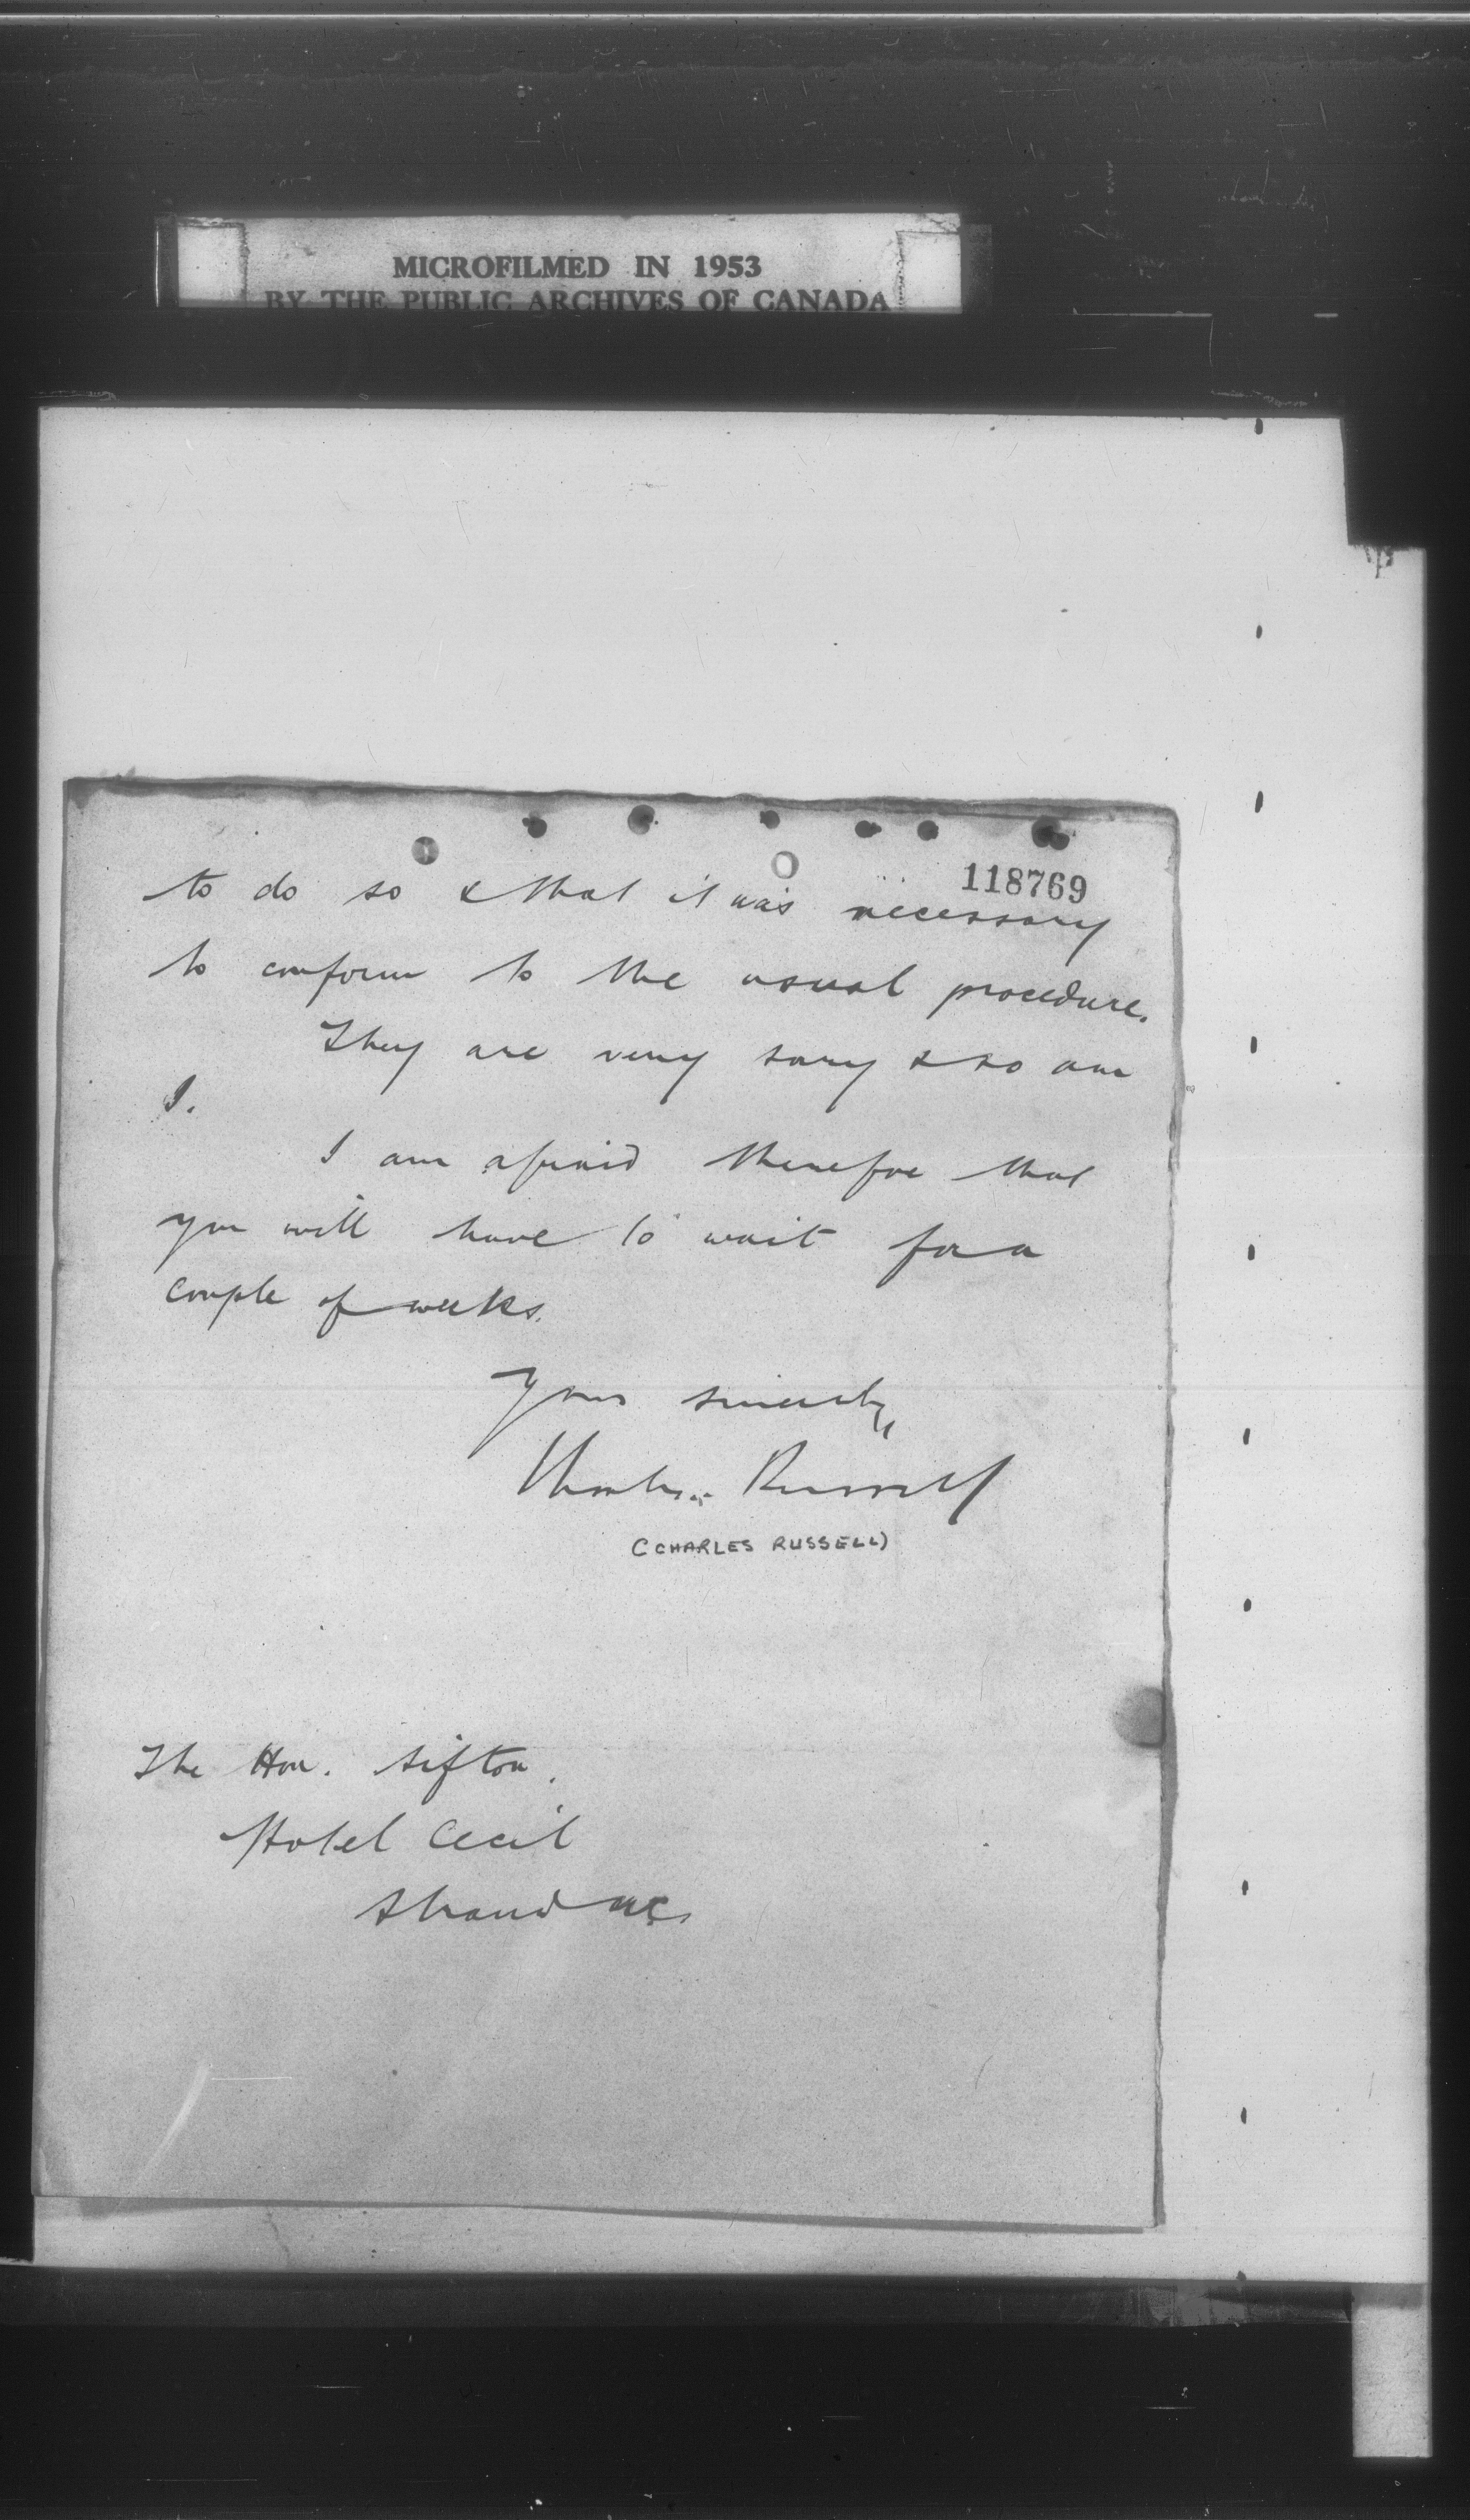 MICROFILMED IN 1953
BY THE PUBLIC ARCHIVES OF CANADA
118769
to do so & that it was necessary
to conform to the usual procedure.
They are very sorry & so am
I.
I am afraid therefore that
you will have to wait for a
couple of weeks.
Yours sincerely,
Charles Russell
(CHARLES RUSSELL)
The Hon. Sifton.
Hotel Cecil
Strand WC.